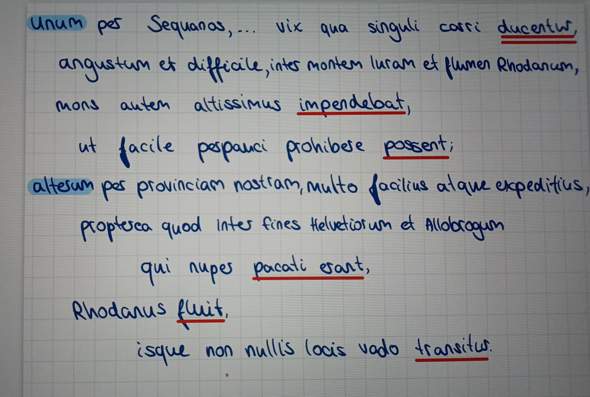 unum per Sequanos,... vix qua singuli carri ducentur,
angustum et difficile, inter montem Iuram et flumen Rhodanum,
mons autem altissimus impendebat,
ut facile perpauci prohibere possent;
alterum per provinciam nostram, multo facilius atque expeditius,
propterea quod inter fines Helvetiorum et Allobrogum
qui nuper pacati erant,
Rhodanus fluit,
isque non nullis locis vado transitur.